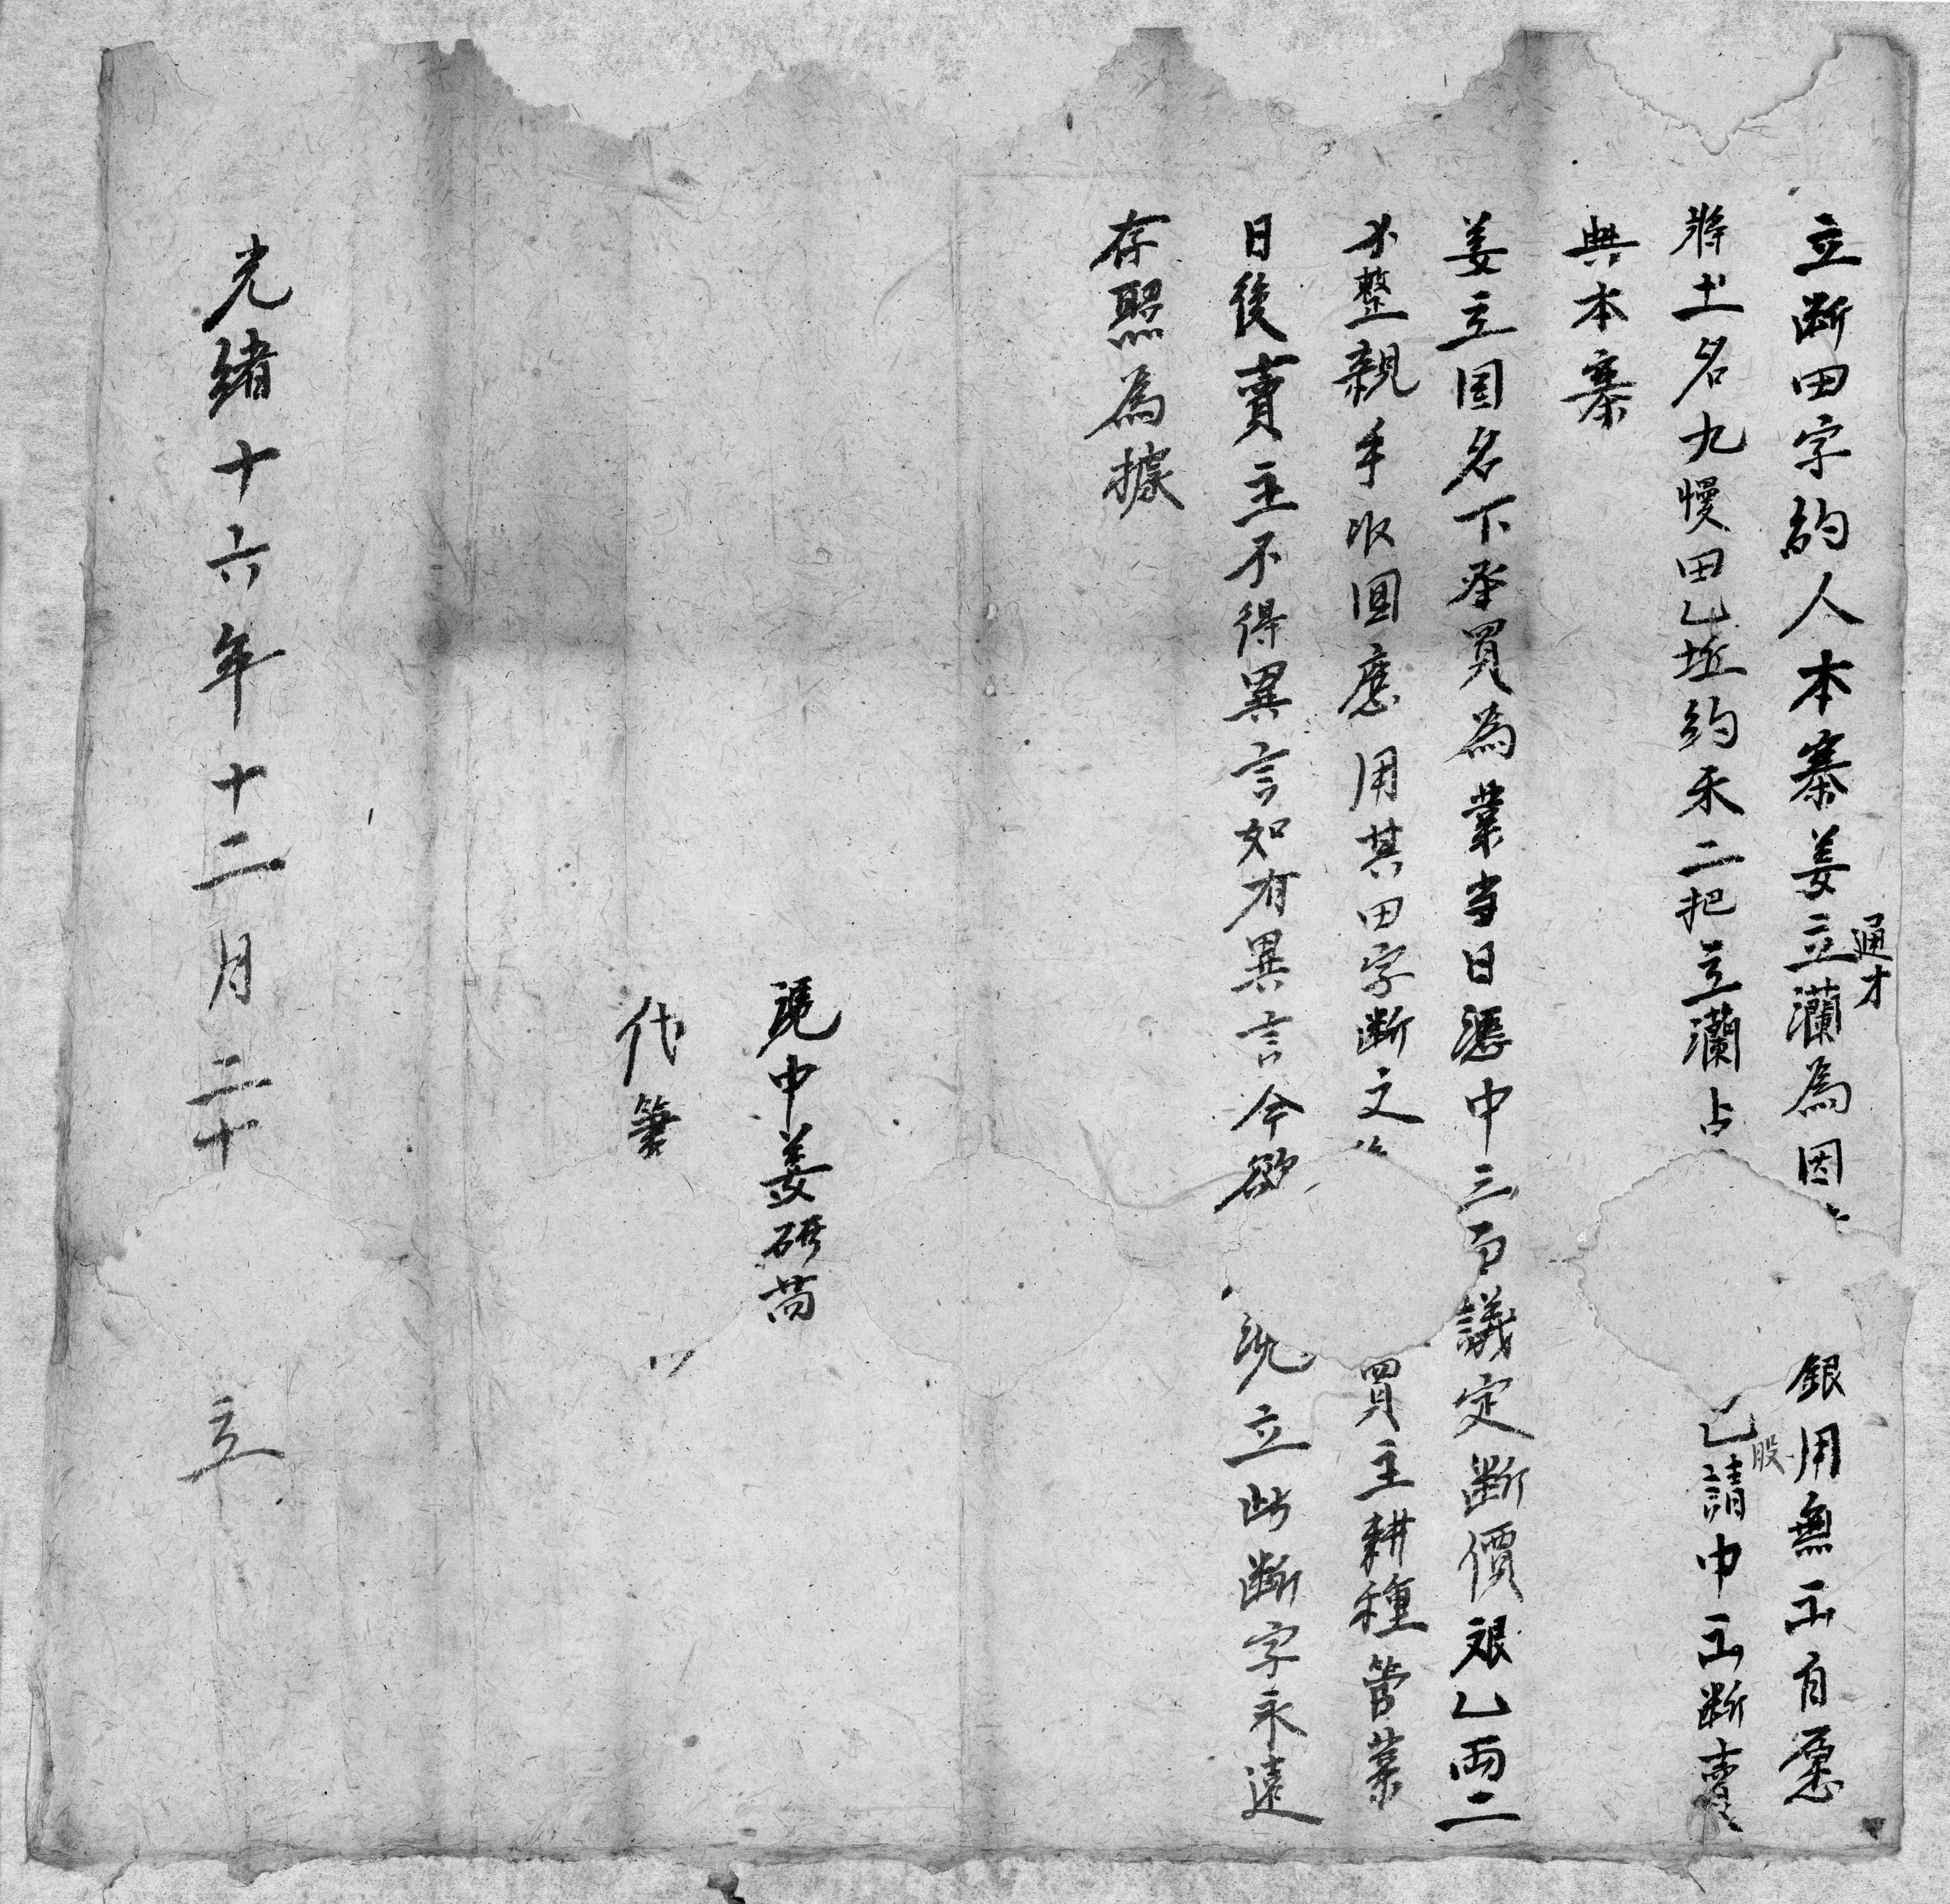 立斷田字約人本寨姜立瀾為因 銀用無 自愿
通才
將土名九慢田乙坵約禾二把立瀾占 乙請中 斷賣
股
與本寨
姜立国名下承買為業当日憑中三面議定斷價艮乙両二
整親手收回應用其田字斷文 買主耕種管業
日後賣主不得異言如有異言今欲 立此斷字永遠
存照為據
憑中姜研茼
代筆
光緒十六年十二月二十 立